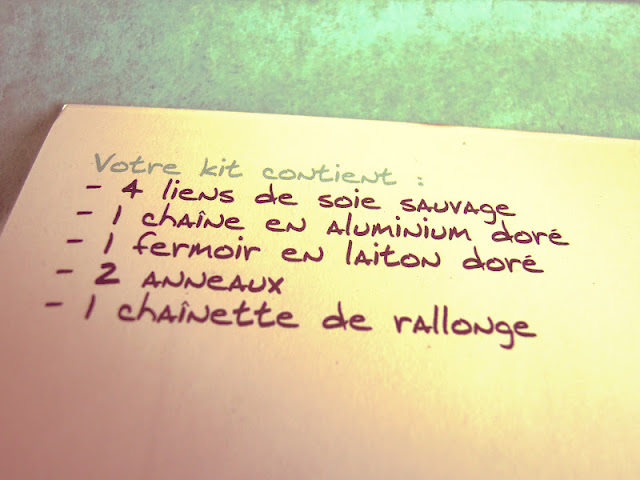 Votre kit contient :
- 4 liens de soie sauvage
- 1 chaîne en aluminium doré
- 1 fermoir en laiton doré
- 2 anneaux
- 1 chaînette de rallonge